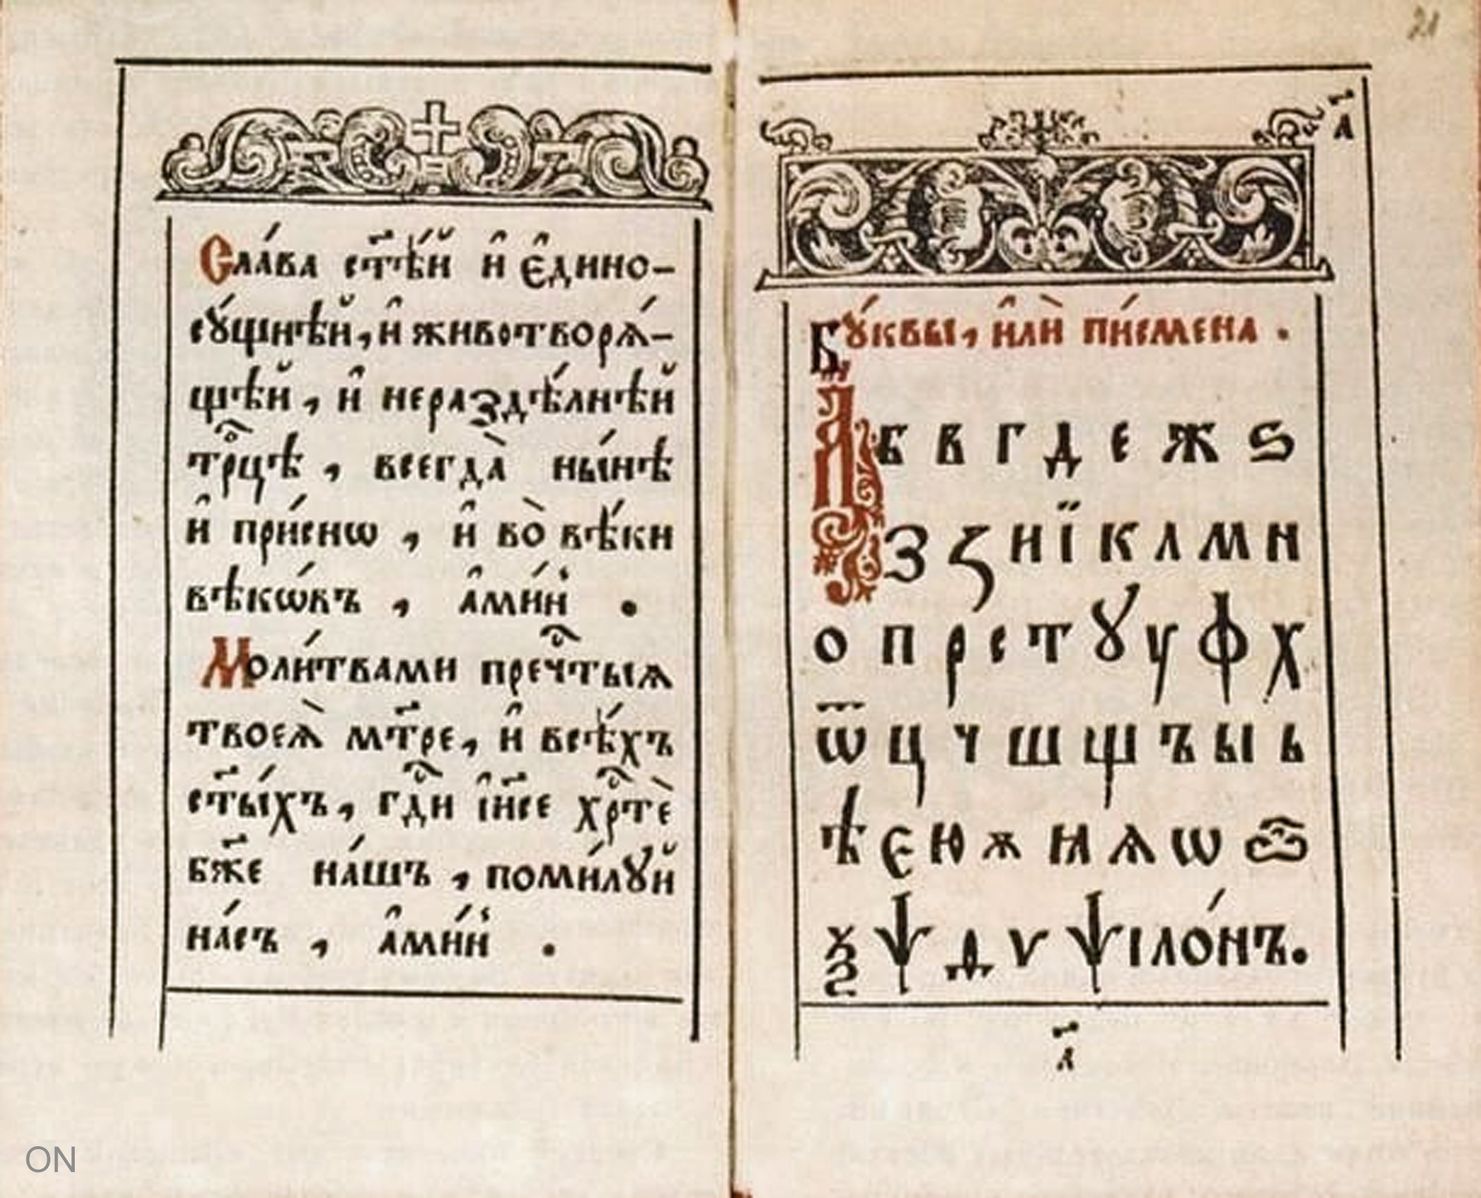 Сла́ва ст҃ѣ́й и҆ є҆дино-
сꙋ́щнѣй, и҆ животворѧ́-
щѣй, и҆ нераздѣ́лнѣй
трⷪ҇цѣ, всегда̀ ны́нѣ
и҆ при́снѡ, и҆ во̀ вѣ́ки
вѣкѡ́въ, а҆ми́нь.
Моли́твами пречⷭ҇тыѧ
твоеѧ̀ мт҃ре, и҆ всѣ́хъ
ст҃ы́хъ, гдⷭ҇и і҆и҃се хрⷭ҇тѐ
бж҃е на́шъ, поми́лꙋй
на́съ, а҆ми́нь.
21
а҃і
Бꙋ́квы, и҆лѝ пи́смена.
А б в г д е ж ѕ
З ꙁ и ї к л м н
о п р с т ꙋ у ф х
ѿ ц ч ш щ ъ ы ь
ѣ є ю ѫ ꙗ ѧ ѡ ѽ
ѯ ѱ д ѵ ѱіло́нъ.
а҃і
ON